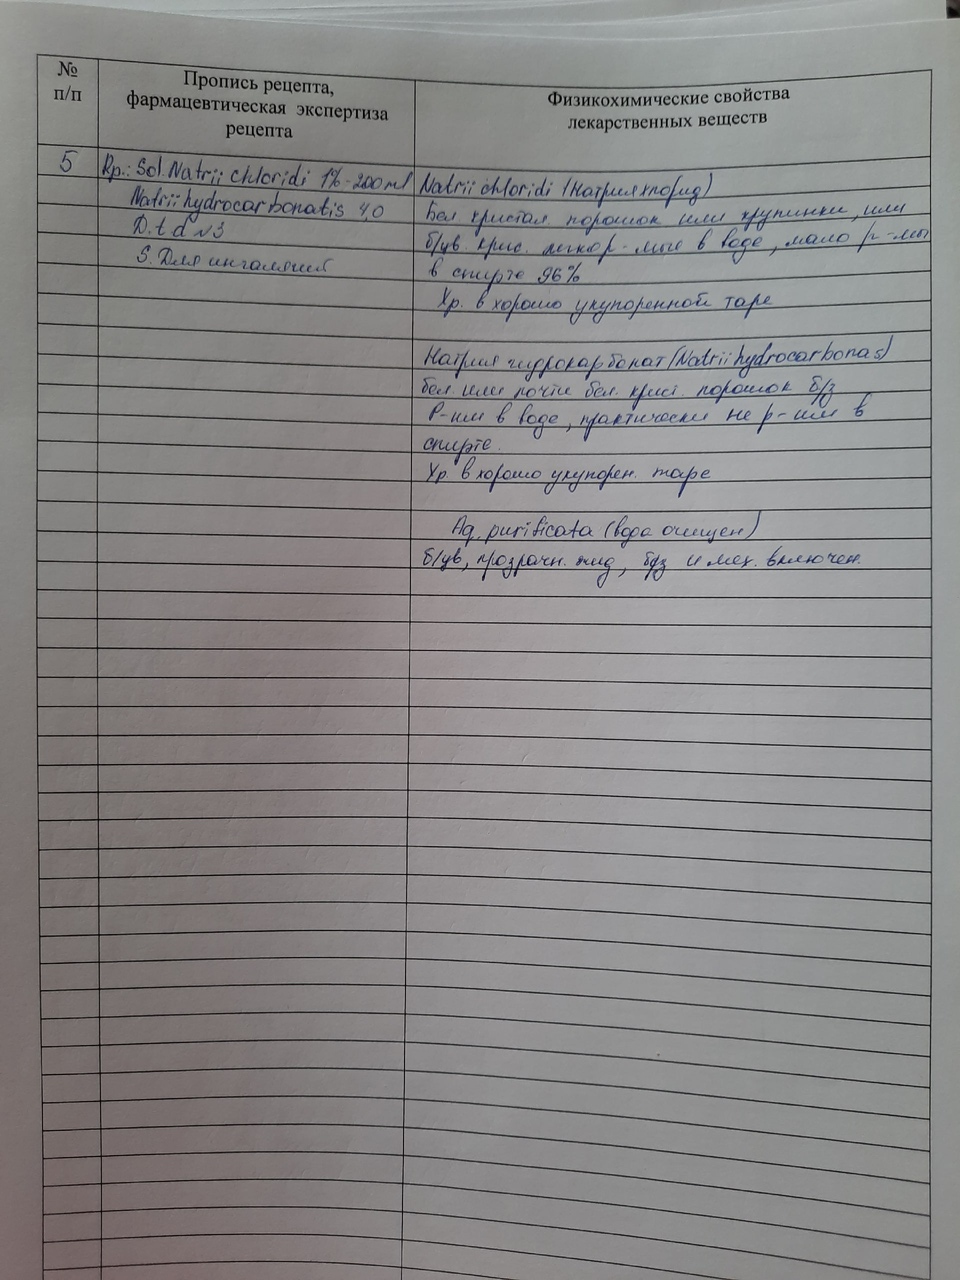 №
п/п
Пропись рецепта,
фармацевтическая экспертиза
рецепта
Физикохимические свойства
лекарственных веществ
5
Rp.: Sol. Natrii chloridi 1% - 200 ml
Natrii hydrocarbonatis 4,0
D. t d N3
S. Для ингаляций
Natrii chloridi (Натрия хлорид)
Бел кристал порошок или крупинки, или
б/цв. крис. легко р-мые в воде, мало р-мы
в спирте 96%
Хр. в хорошо укупоренной таре
Натрия гидрокарбонат (Natrii hydrocarbonas)
бел. или почти бел. крист. порошок б/з
Р-им в воде, практически не р-им в
спирте.
Хр. в хорошо укупорен. таре
Aq. purificata (вода очищен)
б/цв, прозрачн. жид, б/з и мех. включен.